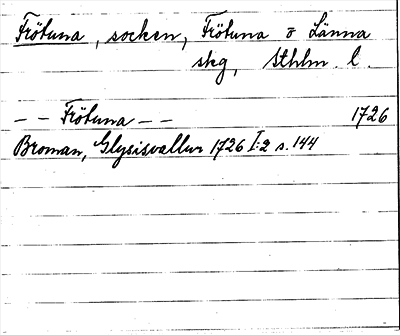 Frötuna, socken, Frötuna o Länna
skg, Sthlm. l.
-- Frötuna -- 1726
Broman, Glysisvallur 1726 I:2 s. 144